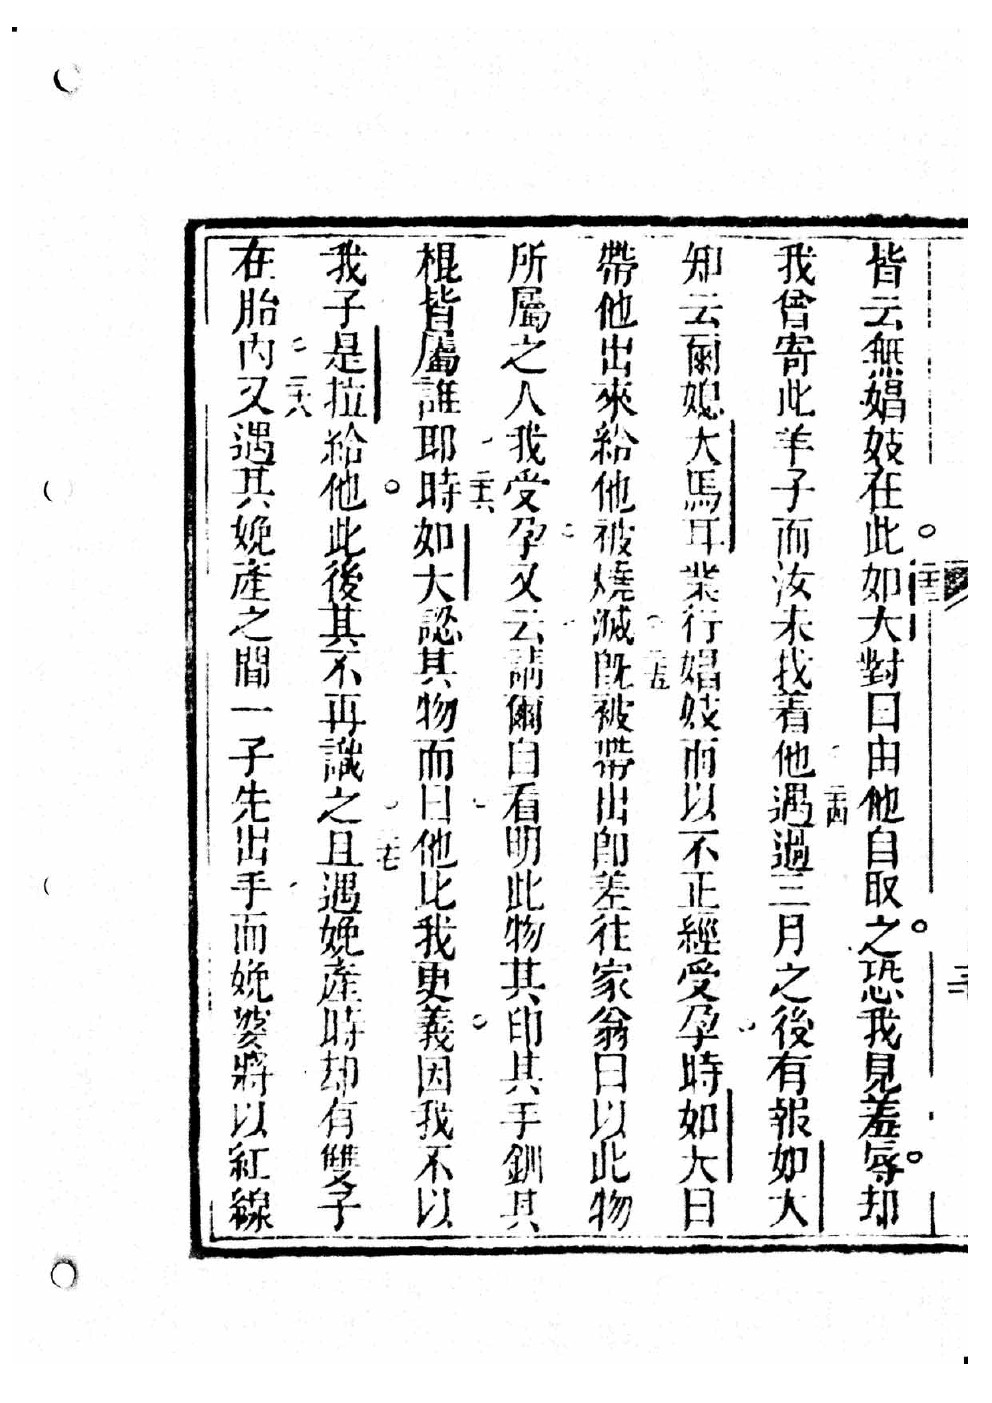 皆云無娼妓在此如大對曰由他自取之恐我見羞辱却
我曾寄此羊子而汝未找着他遇過三月之後有報如大
知云爾媳大馬耳業行娼妓而以不正經受孕時如大曰
帶他出來給他被燒滅旣被帶出卽差往家翁曰以此物
所屬之人我受孕又云請爾自看明此物其印其手釧其
棍皆屬誰耶時如大認其物而曰他比我更義因我不以
我子是拉給他此後其不再識之且遇娩產時却有雙子
在胎內又遇其娩產之間一子先出手而娩婆將以紅線
二十四
二十五
二十六
二十七
二十八